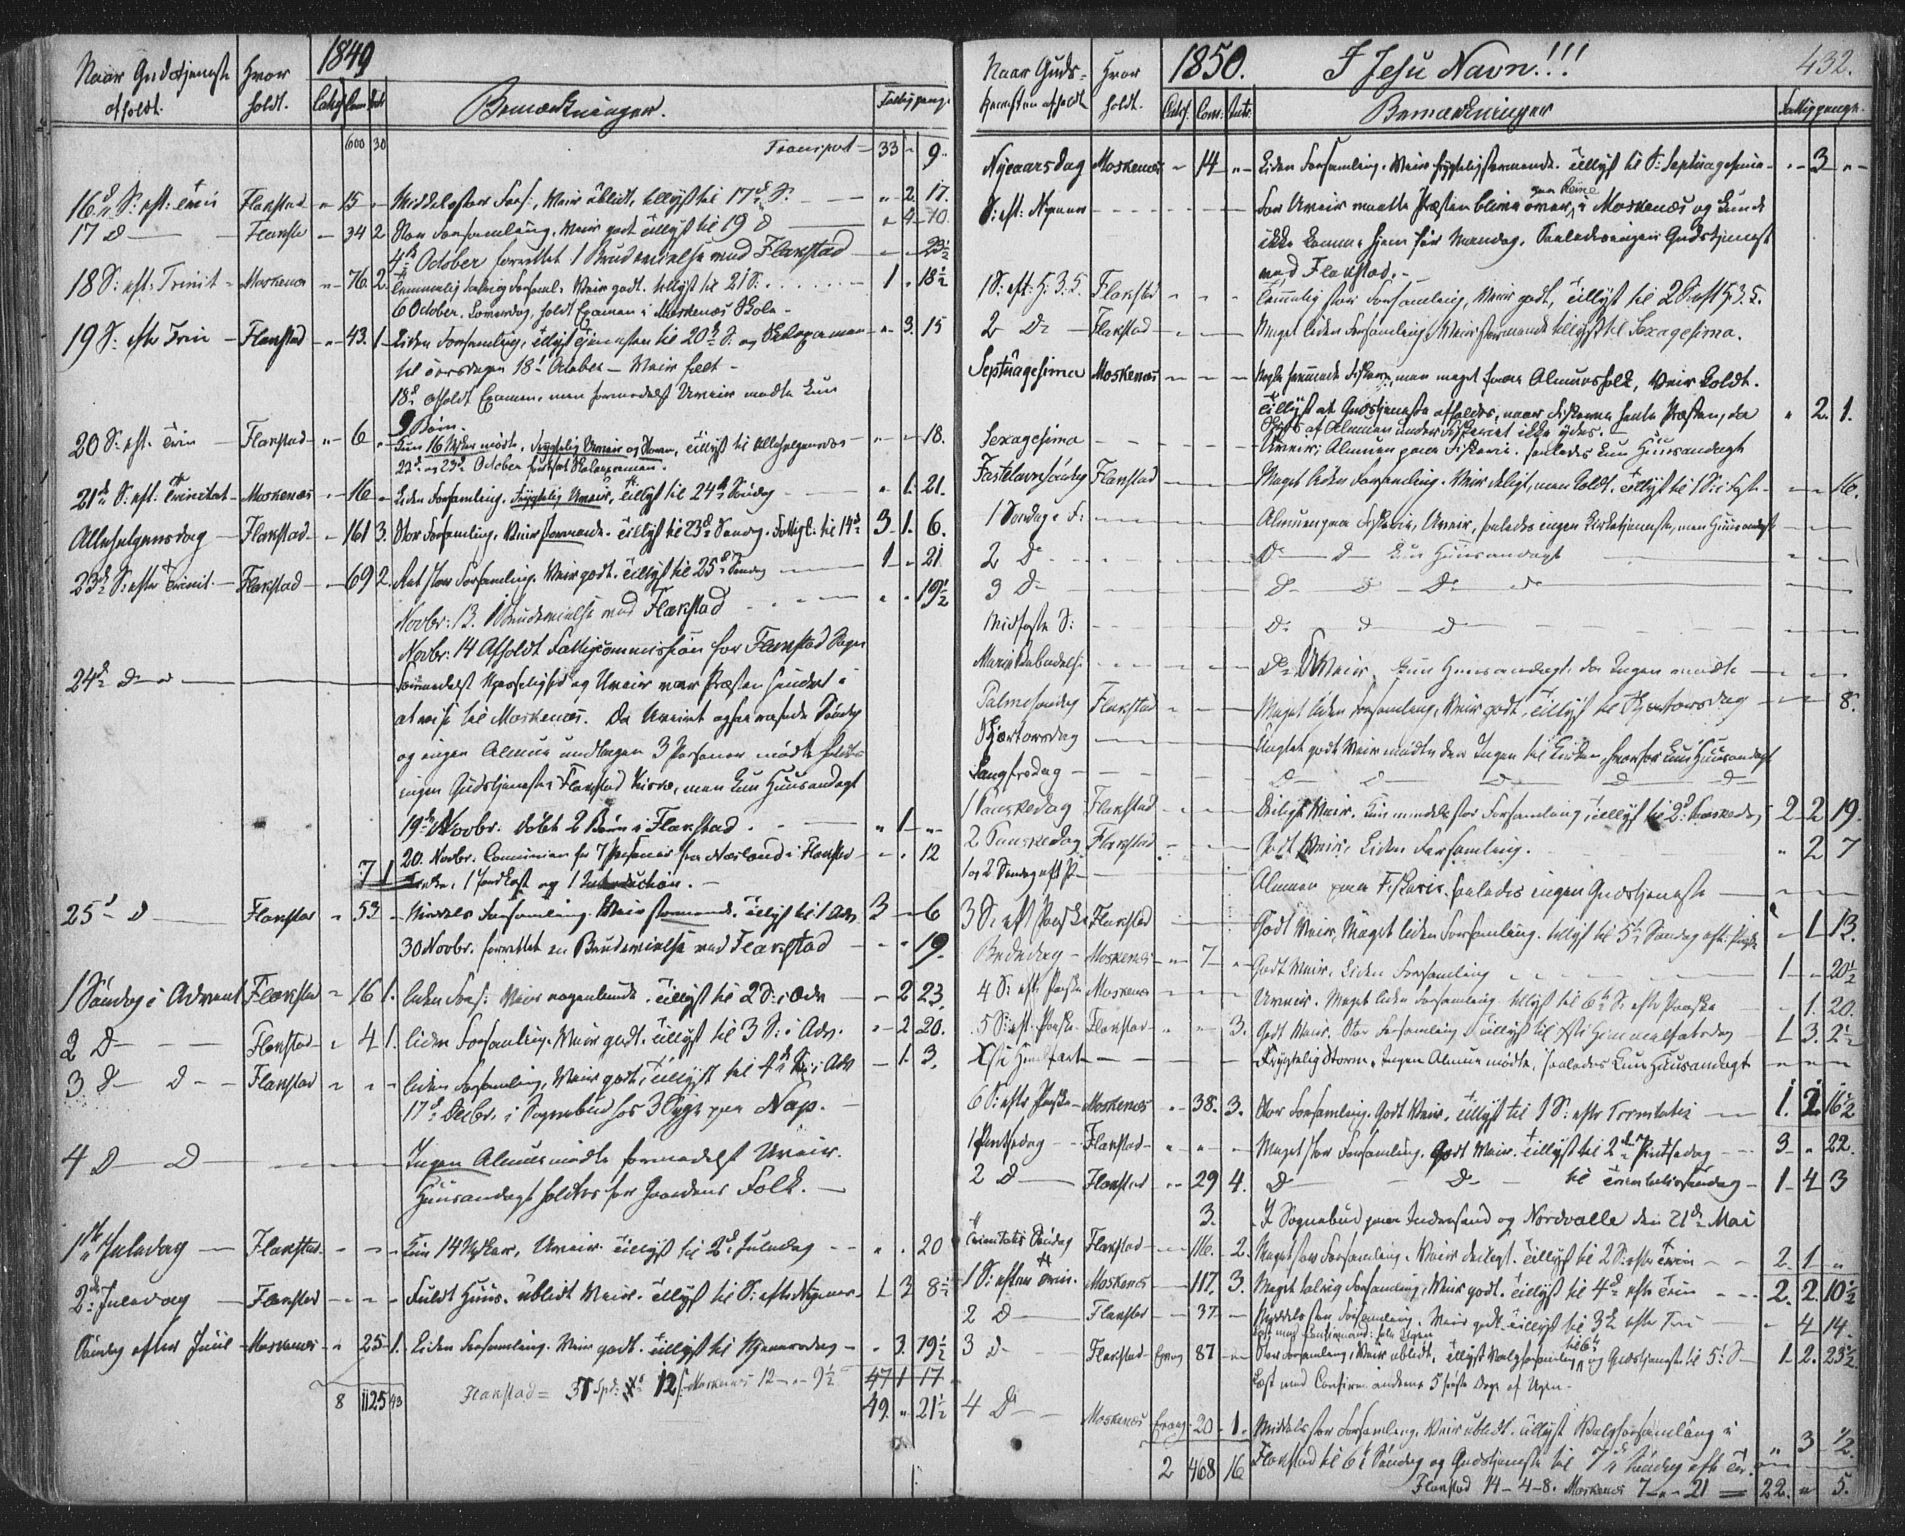 1849
Naar Gudstjeneste afholdt. Hvor holdt. Bemærkninger. Fattigpenge
600 30 Transport – 33 - 9.
16d S: eft: Trin Flakstad " 15 Middelstor Fors:, Veir ublidt, tillyst til 17d S: " 2. 17.
17 D Flakst. 34 2 Stor Forsamling, Veir godt tillyst til 19 D " 4 - 10
4de October forrettet 1 Brudevielse ved Flakstad 23½
18 S: eft: Trinit - Moskenæs - 76. 2. Temmelig talrig Forsaml. Veir godt. tillyst til 21 S: 1 " 18½
6 October, Loverdag, holdt Examen i Moskenæs Skole -
19 S: efter Trin - Flakstad - 43. 1 - Liden Forsamling, tillyst Tjenesten til 20de S: og Skolexamen - 3. 15
til Torsdagen 18d October - Veir helt -
18d afholdt Examen, men formedelst Uveir mødte kun
9 Børn.
20 S: eft: Trin - Flakstad - " 6 " Kun 16 Mskr mødte, Frygtelig Uveir og Storm, tillyst til Allehelgensdag - 18.
22d og 23d October fortsat Skolexamen.
21d S: eft: Trinitat - Moskenæs - 16 - Liden Forsamling. Frygtelig Uveir, tillyst til 24d Søndag " 1. 21.
Allehelgensdag - Flakstad - 161 3. Stor Forsamling. Veir stormende. tillyst til 23d Søndag. Fattigk: til 14d 3. 1. 6.
23d S: efter Trinit. - Flakstad - 69 2. Ret stor Forsamling. Veir godt. tillyst til 25d Søndag 1 - 21
Novbr: 13. 1 Brudevielse ved Flakstad " " 19½
Novbr: 14 Afholdt Fattigcommission for Flakstad Sogn
24d D - Formedelst Upasselighed og Uveir var Præsten hindret i
at reise til Moskenæs. Da Uveiret ogsaa rasede Søndag
og ingen Almue undtagen 3 Personer mødte holdtes
ingen Gudstjeneste i Flakstad Kirke, men kun Huusandagt
19de Novbr. døbt 2 Børn i Flakstad. " 1 - "
7 1 20. Novbr. Communion for 7 Personer fra Næsland i Flakstad - 12
Kirke, 1 Jordkast og 1 Introduction. -
25d D Flakstad " 53 - Middels Forsamling. Veir stormende. tillyst til 1 Adv. 3 - 6
30 Novbr. forrettet en Brudevielse ved Flakstad - 19.
1 Søndag i Advent Flakstad - 16 1. liden Fors: Veir nogenlunde. tillyst til 2 S: i Adv - 2 23.
2 D - Flakstad " 4 1. liden Forsamling. Veir godt. tillyst til 3 S: i Adv. " 2 20.
3 D - D - Flakstad " " " liden Forsamling, Veir godt, tillyst til 4d S: i Adv - 1. 3.
17d Decbr. i Sognebud hos 3 Syge paa Nap. -
4 D D - Ingen Almue mødte formedelst Uveir.
Huusandagt holdtes for Gaardens Folk. -
1ste Juledag - Flakstad - - - Kun 14 Mskr, Uveir. tillyst til 2d Juledag - " 20
2den Juledag - Flakstad - - - Fuldt Huus. ublidt Veir. tillyst til S: efter Nyaar - 1 3 8½
Søndag efter Juul - Moskenæs " 25 1. Liden Forsamling. Veir godt. tillyst til Nyaarsdag - " 3. 19½
47 1 17
8 1125 43 Flakstad = 37 Spd: 12 s. Moskenæs 12 - " 9½ 49. " 21½
1850. I Jesu Navn!!! 432.
Naar Gudstjenesten afholdt Hvor holdt. Bemærkninger Fattigpenge.
Nyaarsdag Moskenæs - 14 - Liden Forsamling. Veir frygtelig stormende. tillyst til S: Septuagesima - 3 "
S: eft: Nyaar - For Uveir maatte Præsten blive over i Moskenæs og kunde
ikke komme hjem før Mandag. Saaledes ingen Gudstjeneste
ved Flakstad. -
1 S: eft: H. 3 K. Flakstad - Temmelig stor Forsamling, Veir godt, tillyst til 2 S: eft H. 3 K.
2 D - Flakstad - Meget liden Forsamling. Veir stormende tillyst til Sexagesima.
Septuagesima Moskenæs - Nogle fremmede Fiskere, men meget faae Almuesfolk, Veir koldt.
tillyst at Gudstjeneste afholdes, naar Fiskerne hente Præsten, da " 2. 1.
Skyds af Almuen under Fiskeriet ikke ydes.
Sexagesima - Uveir; Almuen paa Fiskeri. saaledes kun Huusandagt
Fastelavnssøndag Flakstad - Meget liden Forsamling. Veir deiligt, men koldt. tillyst til 1 S: i Faste - 16.
1 Søndag i F. - Almuen paa Fiskeri, Uveir, saaledes ingen Kirketjeneste, men Huusandagt
2 D - D - D kun Huusandagt
3 D - D D D D
Midfaste S: D D D
Mariæ Bebudelse D - Uveir. kun Huusandagt. da Ingen mødte
Palmesøndag Flakstad - Meget liden Forsamling, Veir godt, tillyst til Skjærtorsdag - 8.
Skjærtorsdag - Uagtet godt Veir mødte der Ingen til Kirken, hvorfor kun Huusandagt
Langfredag - D D D D D
1 Paaskedag Flakstad - Deiligt Veir. Kun middelstor Forsamling, tillyst til 2d Paaskedag 2 - 2 19.
2 Paaskedag Flakstad - Godt Veir. Liden Forsamling. " 2 7
1 og 2 Søndag eft P - Almuen paa Fiskeri. saaledes ingen Gudstjeneste
3 S: eft Paaske Flakstad - Godt Veir, Meget liden Forsamling. tillyst til 5te Søndag eft: Paaske - 1 13.
Bededag - Moskenæs - 7 - Godt Veir. Liden Forsamling 1 - 20½
4 S: eft: Paaske Moskenæs - Uveir. Meget liden Forsamling tillyst til 6te S: efter Paaske - 1. 20.
5 S: eft: Paaske - Flakstad - " " 3. Godt Veir. Stor Forsamling tillyst til Xsti Himmelfartsdag - 1 3. 2½
Xsti Himlfart - Frygtelig Storm, Ingen Almue mødte, saaledes kun Huusandagt
6 S: efter Paaske - Moskenæs " 38. 3. Stor Forsamling. Godt Veir. tillyst til 1 S: efter Trinitatis - 1. 2. 16½
1 Pintsedag - Flakstad - " - " - Meget stor Forsamling. Godt Veir. tillyst til 2den Pintsedag - 3 " 22.
2 D - Flakstad " 29 4. D - D - til Trinitatissøndag - 1 - 4 3
3. I Sognebud paa Indersand og Nordvalle den 21de Mai
Trinitatis Søndag Flakstad - 116. 2. Meget stor Forsamling. Veir deiligt. tillyst til 2 S: efter Trin - 2. 1 "
1 S: efter Trin. Moskenæs - 117. 3. Meget talrig Forsamling, Veir godt. tillyst til 4d efter Trin - 2. 2. 10½
2 D - Flakstad - 37 - Middels stor Forsamling. Veir godt. tillyst til 3d efter Tri - " 4 14.
3 D - Flakstad - 87 - Stor Forsamling, Veir ublidt, tillyst Valgforsamling til 6te og Gudstjeneste til 5te S - 1 - 2. 23½
Læst med Confirmanderne 5 sidste Dage af Ugen -
4 D - Moskenæs 20 - 1. Middelstor Forsamling. Veir ublidt. tillyst Valgforsamling i
2 468 16 Flakstad til 6te Søndag og Gudstjeneste til 7de Søndag eft: Tri. " 3 ½
Flakstad 14 - 4 - 8. Moskenæs 7 - " - 21 = 22. " 5.